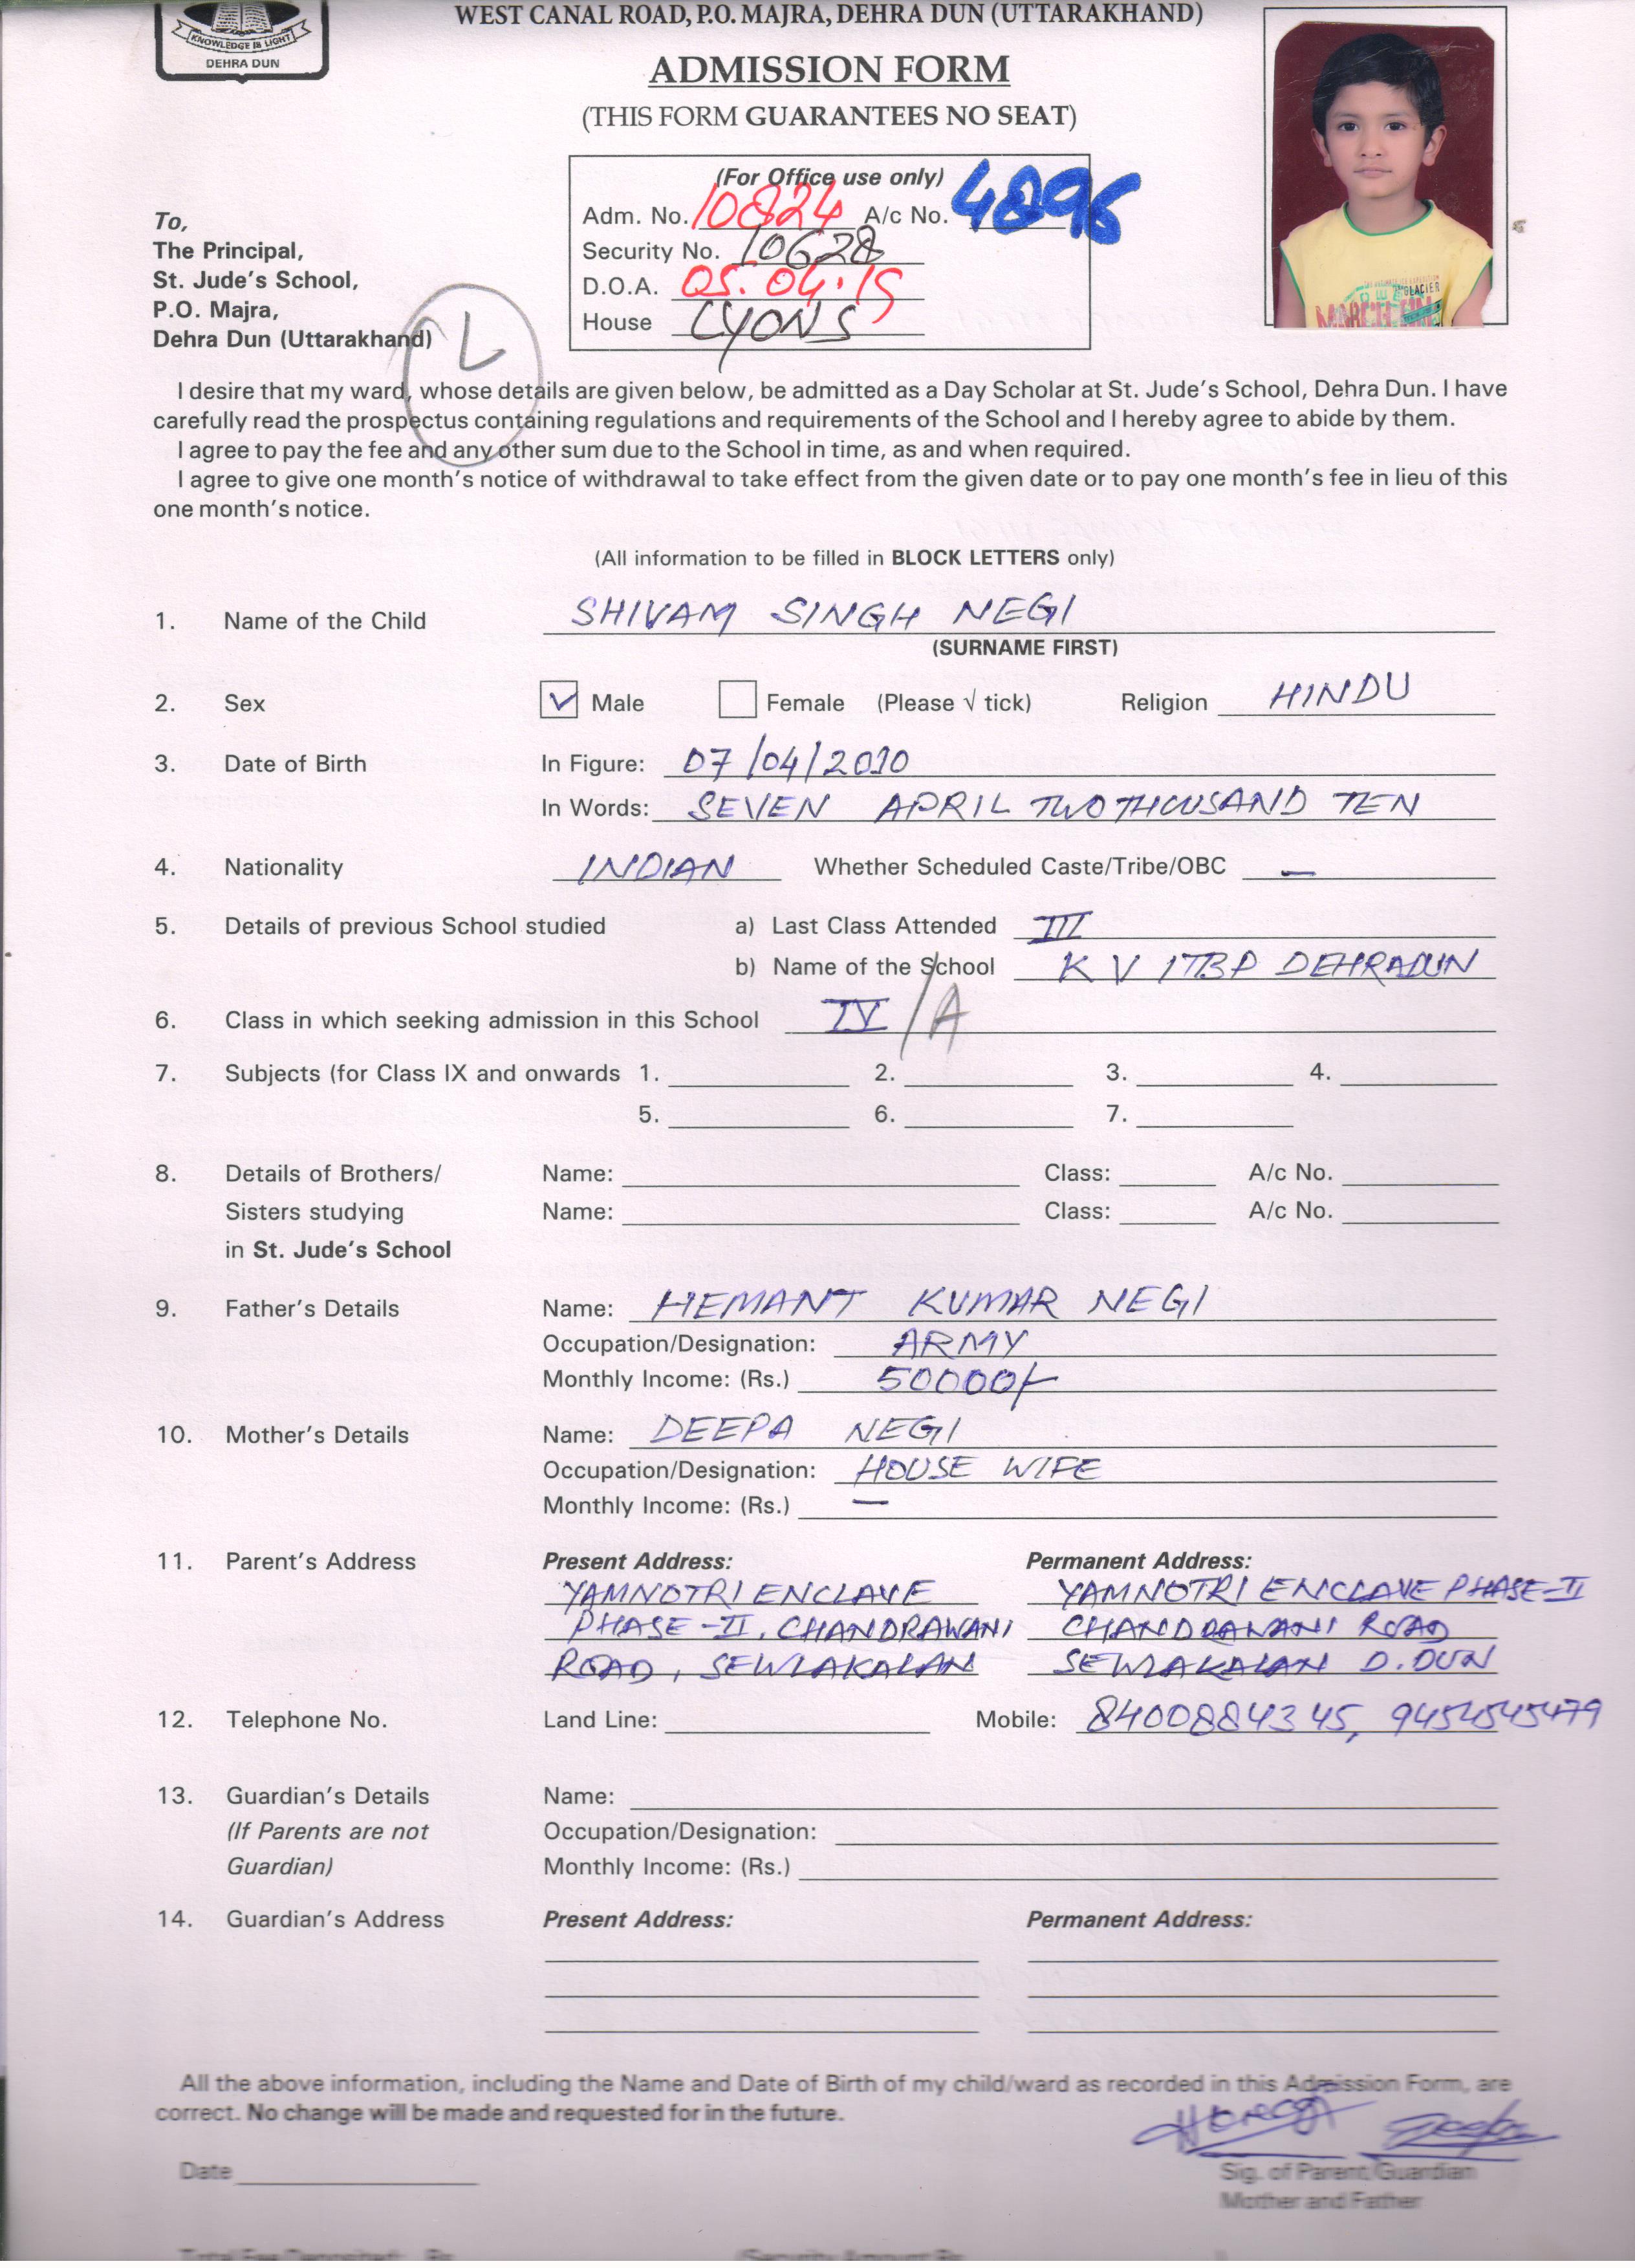 WEST CANAL ROAD, P.O. MAJRA, DEHRA DUN (UTTARAKHAND)
KNOWLEDGE IS LIGHT
DEHRA DUN
ADMISSION FORM
(THIS FORM GUARANTEES NO SEAT)
(For Office use only)
Adm. No. 10824 A/c No. 4896
Security No. 10628
D.O.A. 05.04.19
House LYONS
GLACIER
To,
The Principal,
St. Jude's School,
P.O. Majra,
Dehra Dun (Uttarakhand)
L
I desire that my ward, whose details are given below, be admitted as a Day Scholar at St. Jude's School, Dehra Dun. I have
carefully read the prospectus containing regulations and requirements of the School and I hereby agree to abide by them.
I agree to pay the fee and any other sum due to the School in time, as and when required.
I agree to give one month's notice of withdrawal to take effect from the given date or to pay one month's fee in lieu of this
one month's notice.
(All information to be filled in BLOCK LETTERS only)
1. Name of the Child SHIVAM SINGH NEGI
(SURNAME FIRST)
2. Sex ✓ Male Female (Please √ tick) Religion HINDU
3. Date of Birth In Figure: 07/04/2010
In Words: SEVEN APRIL TWO THOUSAND TEN
4. Nationality INDIAN Whether Scheduled Caste/Tribe/OBC —
5. Details of previous School studied a) Last Class Attended III
b) Name of the School K V ITBP DEHRADUN
6. Class in which seeking admission in this School IV /A
7. Subjects (for Class IX and onwards 1. 2. 3. 4.
5. 6. 7.
8. Details of Brothers/ Name: Class: A/c No.
Sisters studying Name: Class: A/c No.
in St. Jude's School
9. Father's Details Name: HEMANT KUMAR NEGI
Occupation/Designation: ARMY
Monthly Income: (Rs.) 50000/-
10. Mother's Details Name: DEEPA NEGI
Occupation/Designation: HOUSE WIFE
Monthly Income: (Rs.) —
11. Parent's Address Present Address: Permanent Address:
YAMNOTRI ENCLAVE YAMNOTRI ENCLAVE PHASE-II
PHASE-II, CHANDRAWANI CHANDRAWANI ROAD
ROAD, SEWLAKALAN SEWLAKALAN D.DUN
12. Telephone No. Land Line: Mobile: 8400884345, 9454545479
13. Guardian's Details Name:
(If Parents are not Occupation/Designation:
Guardian) Monthly Income: (Rs.)
14. Guardian's Address Present Address: Permanent Address:
All the above information, including the Name and Date of Birth of my child/ward as recorded in this Admission Form, are
correct. No change will be made and requested for in the future.
Date
Sig. of Parent/Guardian
Mother and Father